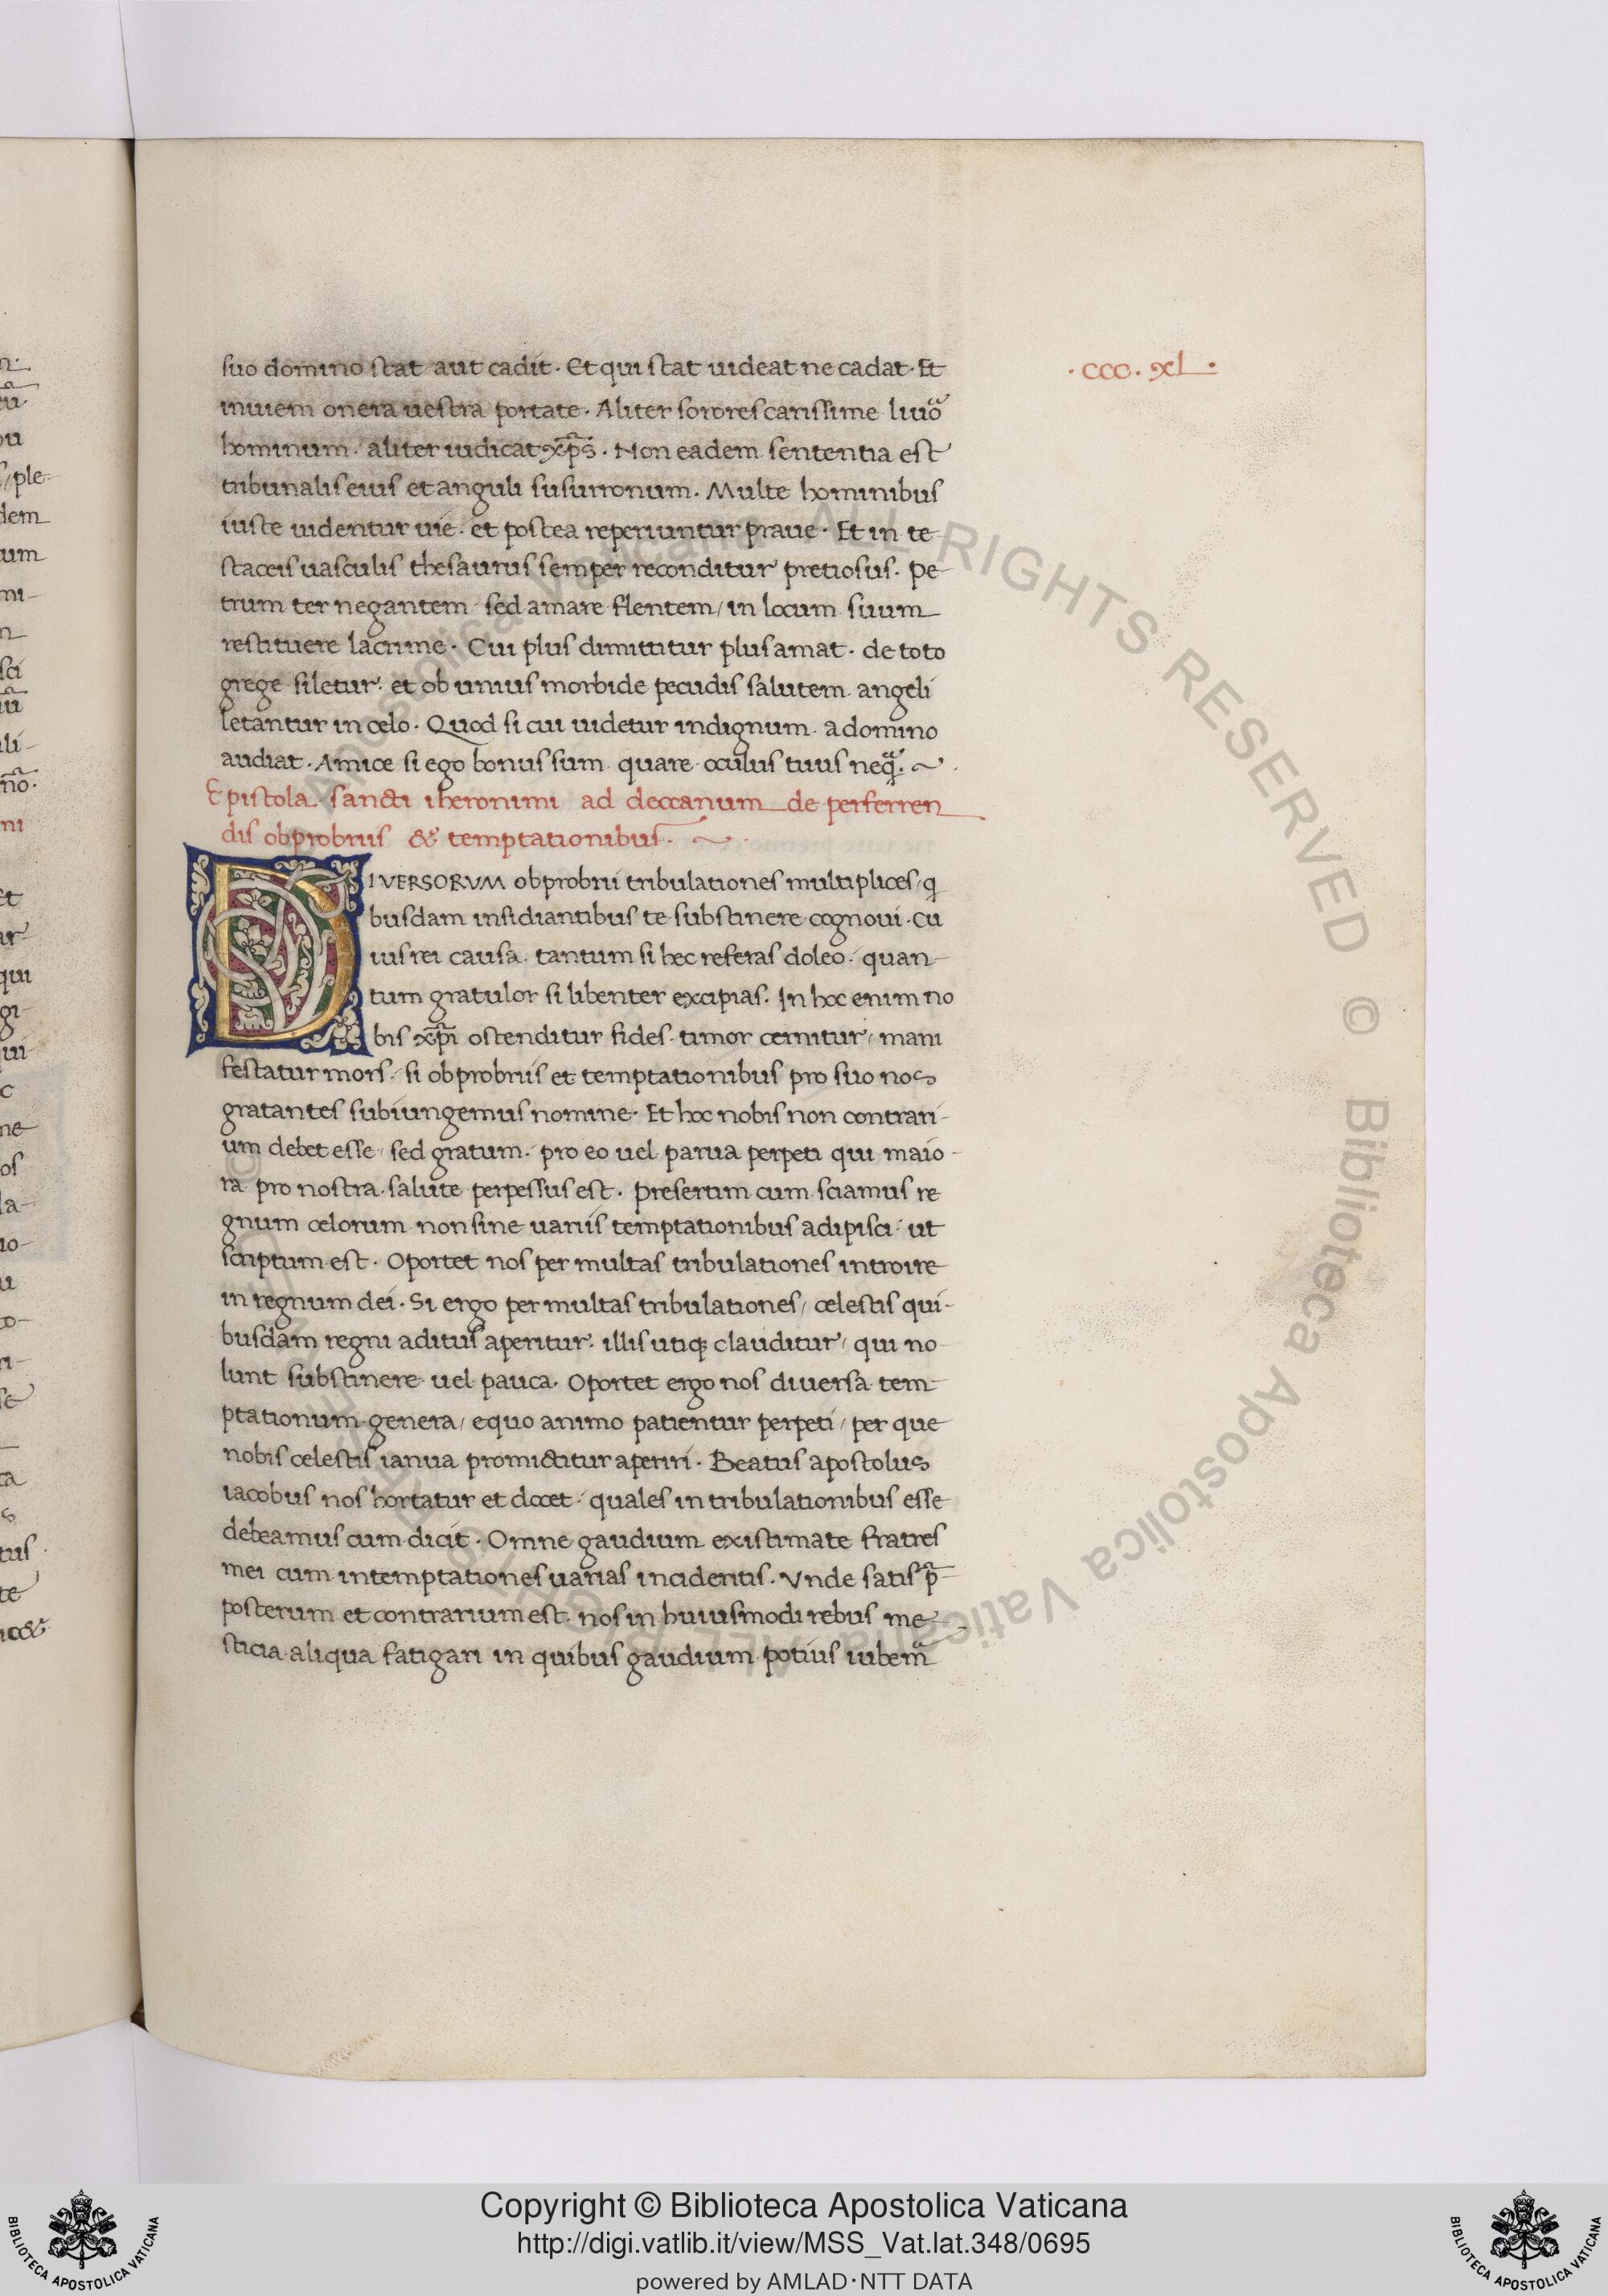 suo domino stat aut cadit. Et qui stat uideat ne cadat. Et
inuiem onera uestra portate. Aliter sorores carissime liuo᷒
hominum. aliter iudicat xp̄s. Non eadem sententia est
tribunalis eius et anguli susurronum. Multe hominibus
iuste uidentur uie. et postea reperiuntur praue. Et in te
staceis uasculis thesaurus semper reconditur pretiosus. Pe-
trum ter negantem sed amare flentem / in locum suum
restituere lacrime. Cui plus dimittitur plus amat. de toto
grege siletur. et ob unius morbide pecudis salutem angeli
letantur in celo. Quod si cui uidetur indignum. a domino
audiat. Amice si ego bonus sum quare oculus tuus neq̄. ~
.ccc.xl.
Epistola sancti iheronimi ad deccanum de perferren
dis obprobriis & temptationibus. ~
DIVERSORVM obprobrii tribulationes multiplices / q
busdam insidiantibus te substinere cognoui. Cu
ius rei causa. tantum si hec referas doleo. quan-
tum gratulor si libenter excipias. In hoc enim no
bis xp̄i ostenditur fides. timor cernitur / mani
festatur mors. si obprobriis et temptationibus pro suo nos
gratantes subiungemus nomine. Et hoc nobis non contrari-
um debet esse / sed gratum. pro eo uel parua perpeti qui maio-
ra pro nostra salute perpessus est. Presertim cum sciamus re
gnum celorum non sine uariis temptationibus adipisci. ut
scriptum est. Oportet nos per multas tribulationes introire
in regnum dei. Si ergo per multas tribulationes / celestis qui-
busdam regni aditus aperitur. illis utiq; clauditur / qui no-
lunt substinere uel pauca. Oportet ergo nos diuersa tem-
ptationum genera / equo animo patientur perpeti / per que
nobis celestis ianua promictitur aperiri. Beatus apostolus
iacobus nos hortatur et docet. quales in tribulationibus esse
debeamus cum dicit. Omne gaudium existimate fratres
mei cum in temptationes uarias incideritis. Vnde satis p̄
posterum et contrarium est. nos in huiusmodi rebus me-
sticia aliqua fatigari in quibus gaudium potius iubem̄
© Biblioteca Apostolica Vaticana ALL RIGHTS RESERVED
© Biblioteca Apostolica Vaticana ALL RIGHTS RESERVED
Copyright © Biblioteca Apostolica Vaticana
http://digi.vatlib.it/view/MSS_Vat.lat.348/0695
powered by AMLAD·NTT DATA
BIBLIOTECA APOSTOLICA VATICANA
BIBLIOTECA APOSTOLICA VATICANA